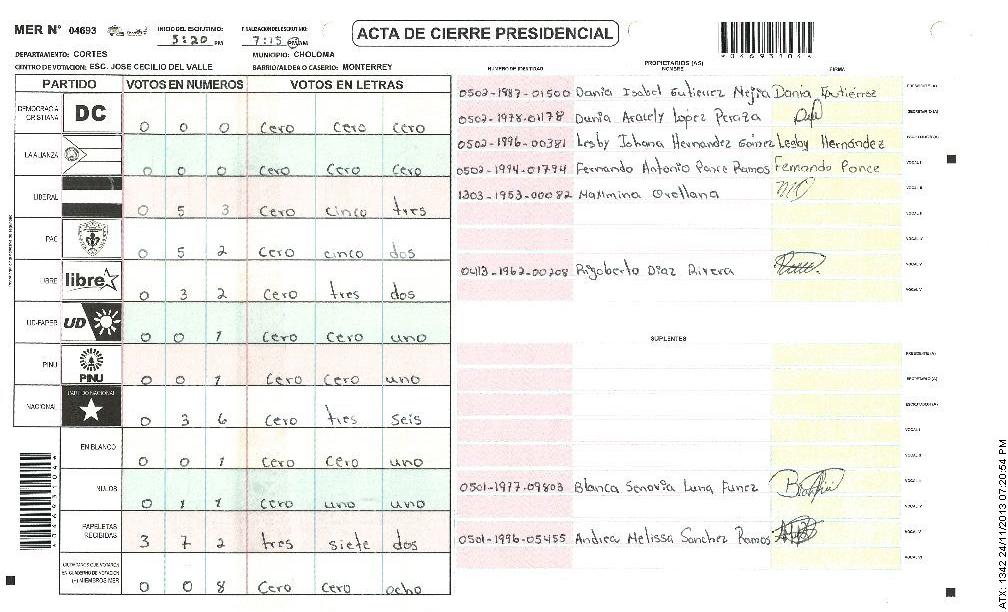 MER N° 04693
INICIO DEL ESCRUTINIO: 5:20 PM
FINALIZACION DEL ESCRUTINIO: 7:15 PM
ACTA DE CIERRE PRESIDENCIAL
*046931044*
DEPARTAMENTO: CORTES
MUNICIPIO: CHOLOMA
CENTRO DE VOTACION: ESC. JOSE CECILIO DEL VALLE
BARRIO/ALDEA O CASERIO: MONTERREY
PARTIDO VOTOS EN NUMEROS VOTOS EN LETRAS
DEMOCRACIA CRISTIANA DC 0 0 0 Cero Cero Cero
LA ALIANZA 0 0 0 Cero Cero Cero
LIBERAL 0 5 3 Cero cinco tres
PAC 0 5 2 Cero cinco dos
LIBRE libre 0 3 2 Cero tres dos
UD-FAPER UD 0 0 1 Cero Cero uno
PINU PINU 0 0 1 Cero Cero uno
NACIONAL PARTIDO NACIONAL 0 3 6 Cero tres seis
EN BLANCO 0 0 1 Cero Cero uno
NULOS 0 1 1 Cero uno uno
PAPELETAS RECIBIDAS 3 7 2 tres siete dos
CIUDADANOS QUE VOTARON EN CUADERNO DE VOTACION (+) MIEMBROS MER 0 0 8 Cero Cero ocho
*046931044*
PROPIETARIOS (AS)
NUMERO DE IDENTIDAD NOMBRE FIRMA
0502-1987-01500 Dania Isabel Gutierrez Mejia Dania Gutiérrez PRESIDENTE (A)
0502-1978-01178 Dunia Aracely Lopez Peraza SECRETARIO (A)
0502-1996-00381 Lesby Johana Hernandez Gómez Lesby Hernández ESCRUTADOR (A)
0502-1994-01794 Fernando Antonio Ponce Ramos Fernando Ponce VOCAL I
1303-1953-00082 Maximina Orellana VOCAL II
VOCAL III
VOCAL IV
0413-1962-00208 Rigoberto Diaz Rivera VOCAL V
VOCAL VI
SUPLENTES
PRESIDENTE (A)
SECRETARIO (A)
ESCRUTADOR (A)
VOCAL I
VOCAL II
0501-1977-09803 Blanca Senovia Luna Funez VOCAL III
VOCAL IV
0501-1996-05455 Andrea Melissa Sanchez Ramos VOCAL V
VOCAL VI
ATX: 1342 24/11/2013 07:20:54 PM